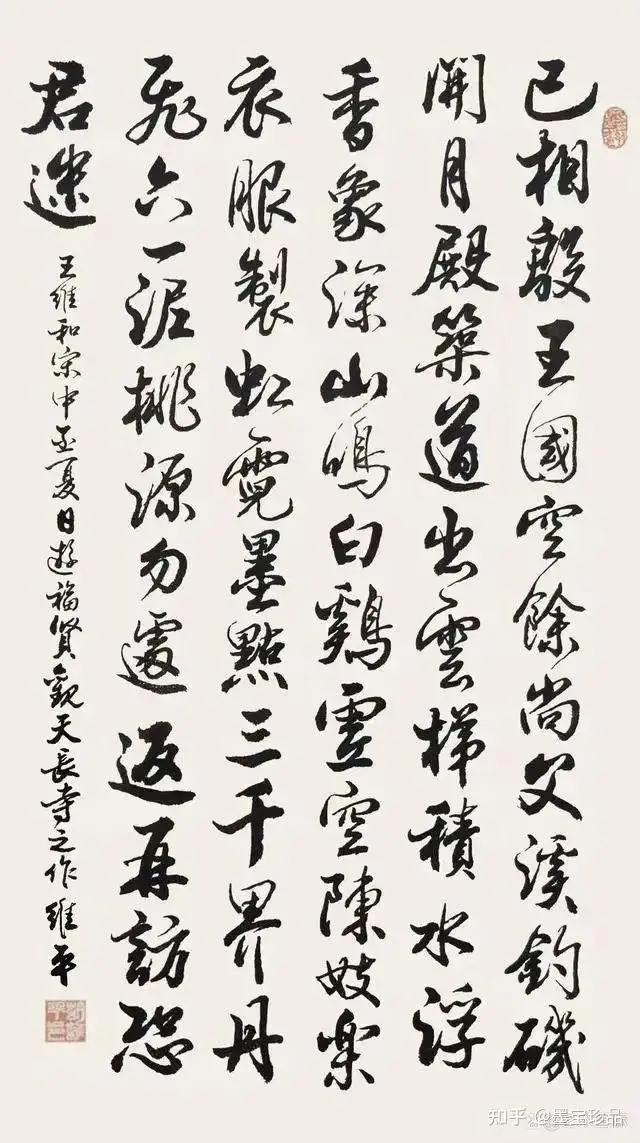 已相殷王國空餘尚父溪釣磯
開月殿築道出雲梯積水浮
香象深山鳴白鷄虛空陳妓樂
衣服製虹霓墨點三千界丹
飛六一泥桃源勿遽返再訪恐
君迷
王維和宋中丞夏日遊福賢觀天長寺之作維平
知乎 @墨宝珍品